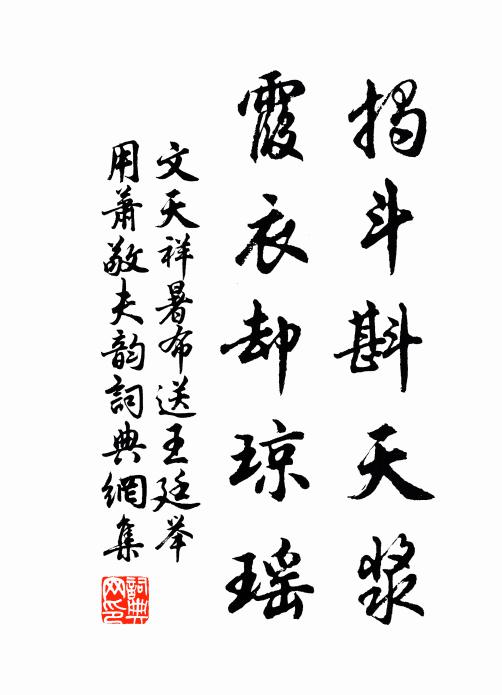 揭斗斟天浆
霞衣却琼瑶
文天祥暑布送王廷举
用萧敬夫韵詞典網集
詞典网印